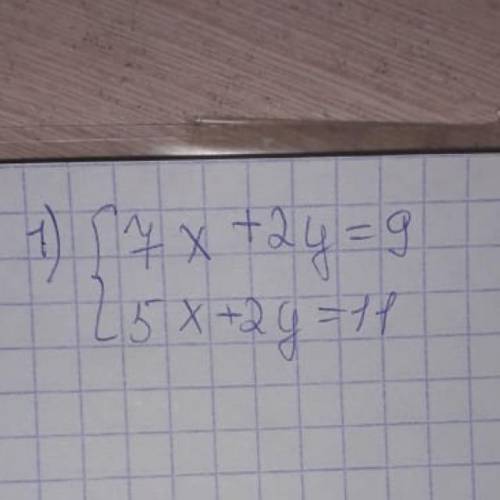 1) { 7x + 2y = 9
5x + 2y = 11